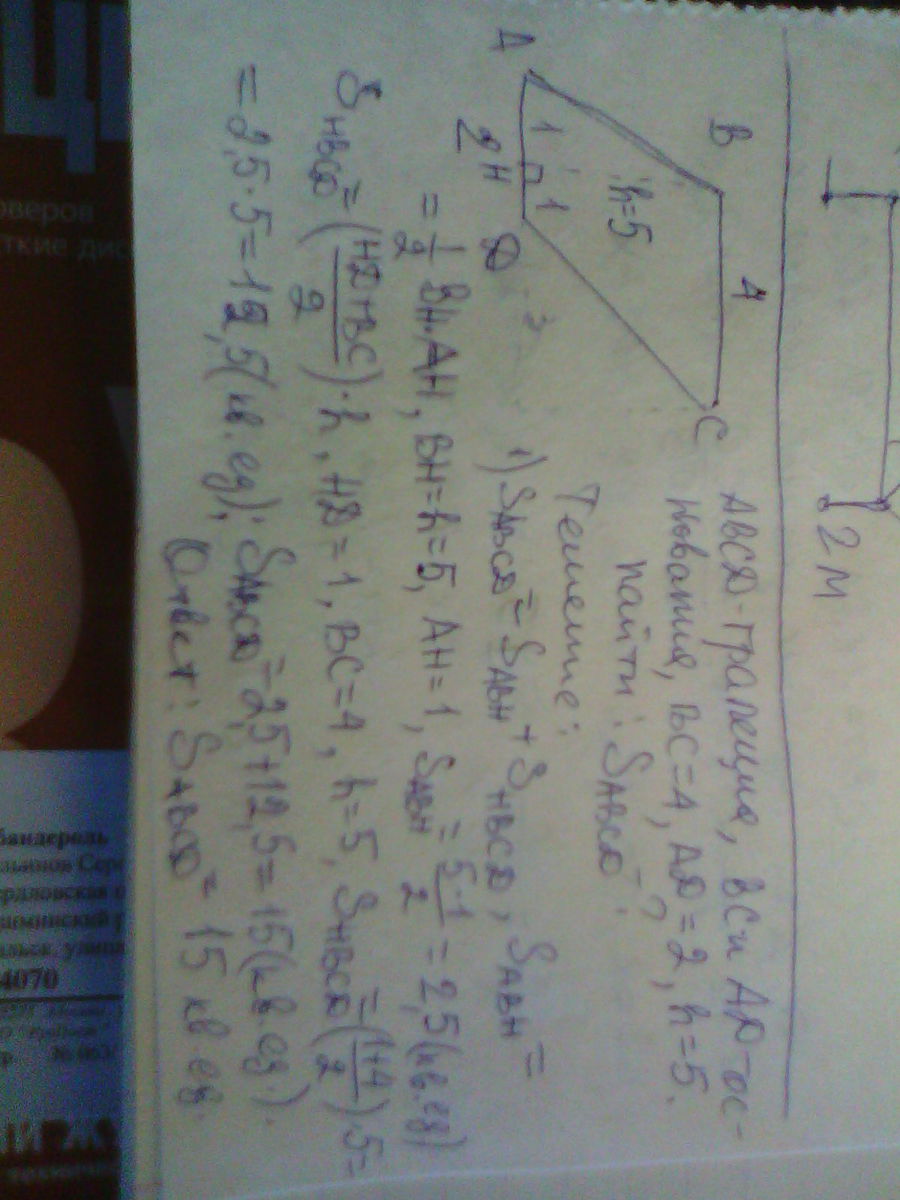 2 М
В
4
С
h=5
А
1
1
2
Н
D
ABCD-трапеция, BC и AD-ос-
нования, BC=4, AD=2, h=5.
Найти: SABCD-?
Решение:
1) SABCD = SABH + SHBCD, SABH =
= 1/2 BH·AH, BH=h=5, AH=1, SABH = 5·1/2 = 2,5(кв.ед)
SHBCD = (HD+BC/2)·h, HD=1, BC=4, h=5, SHBCD = (1+4/2)·5=
=2,5·5=12,5(кв.ед); SABCD=2,5+12,5=15(кв.ед.).
Ответ: SABCD = 15 кв.ед.
оверов
ткие дис
бандероль
4070